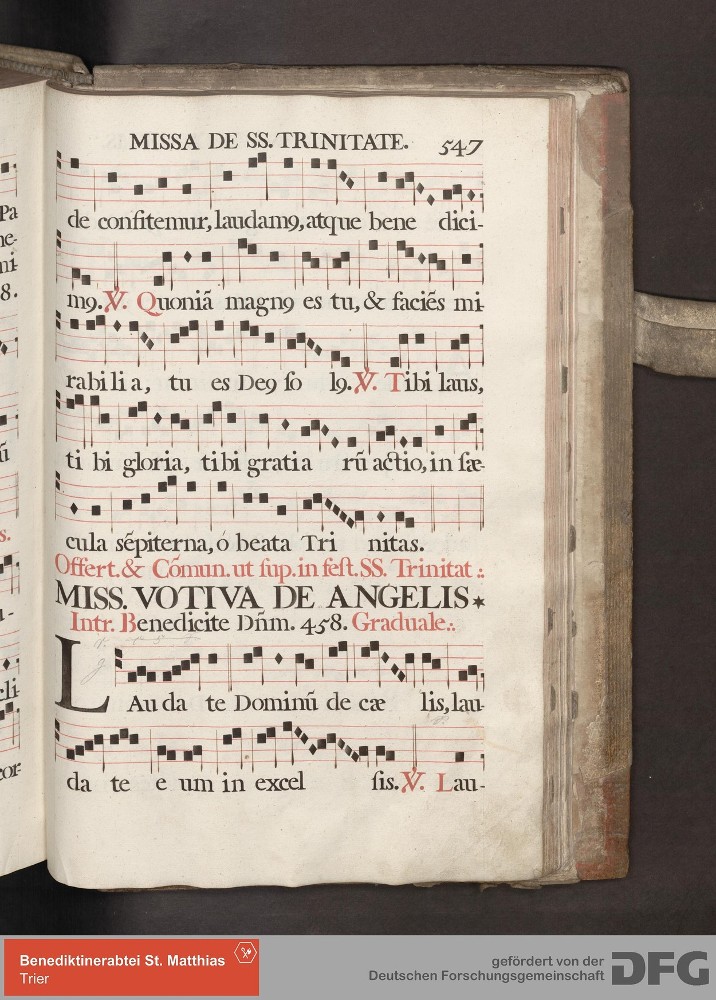 MISSA DE SS. TRINITATE. 547
de confitemur, laudamꝰ, atque bene dici-
mꝰ. ℣. Quoniã magnꝰ es tu, & faciẽs mi-
rabilia, tu es Deꝰ ſo lꝰ. ℣. Tibi laus,
ti bi gloria, tibi gratia rũ actio, in ſæ-
cula sẽpiterna, ó beata Tri nitas.
Offert. & Cõmun. ut ſup. in feſt. SS. Trinitat.:
MISS. VOTIVA DE ANGELIS *
Intr. Benedicite Dñm. 458. Graduale.:
LAu da te Dominũ de cæ lis, lau-
da te e um in excel ſis. ℣. Lau-
Pa
ne-
mi
8.
ũ
s.
cli-
cor-
Benediktinerabtei St. Matthias
Trier
gefördert von der
Deutschen Forschungsgemeinschaft DFG